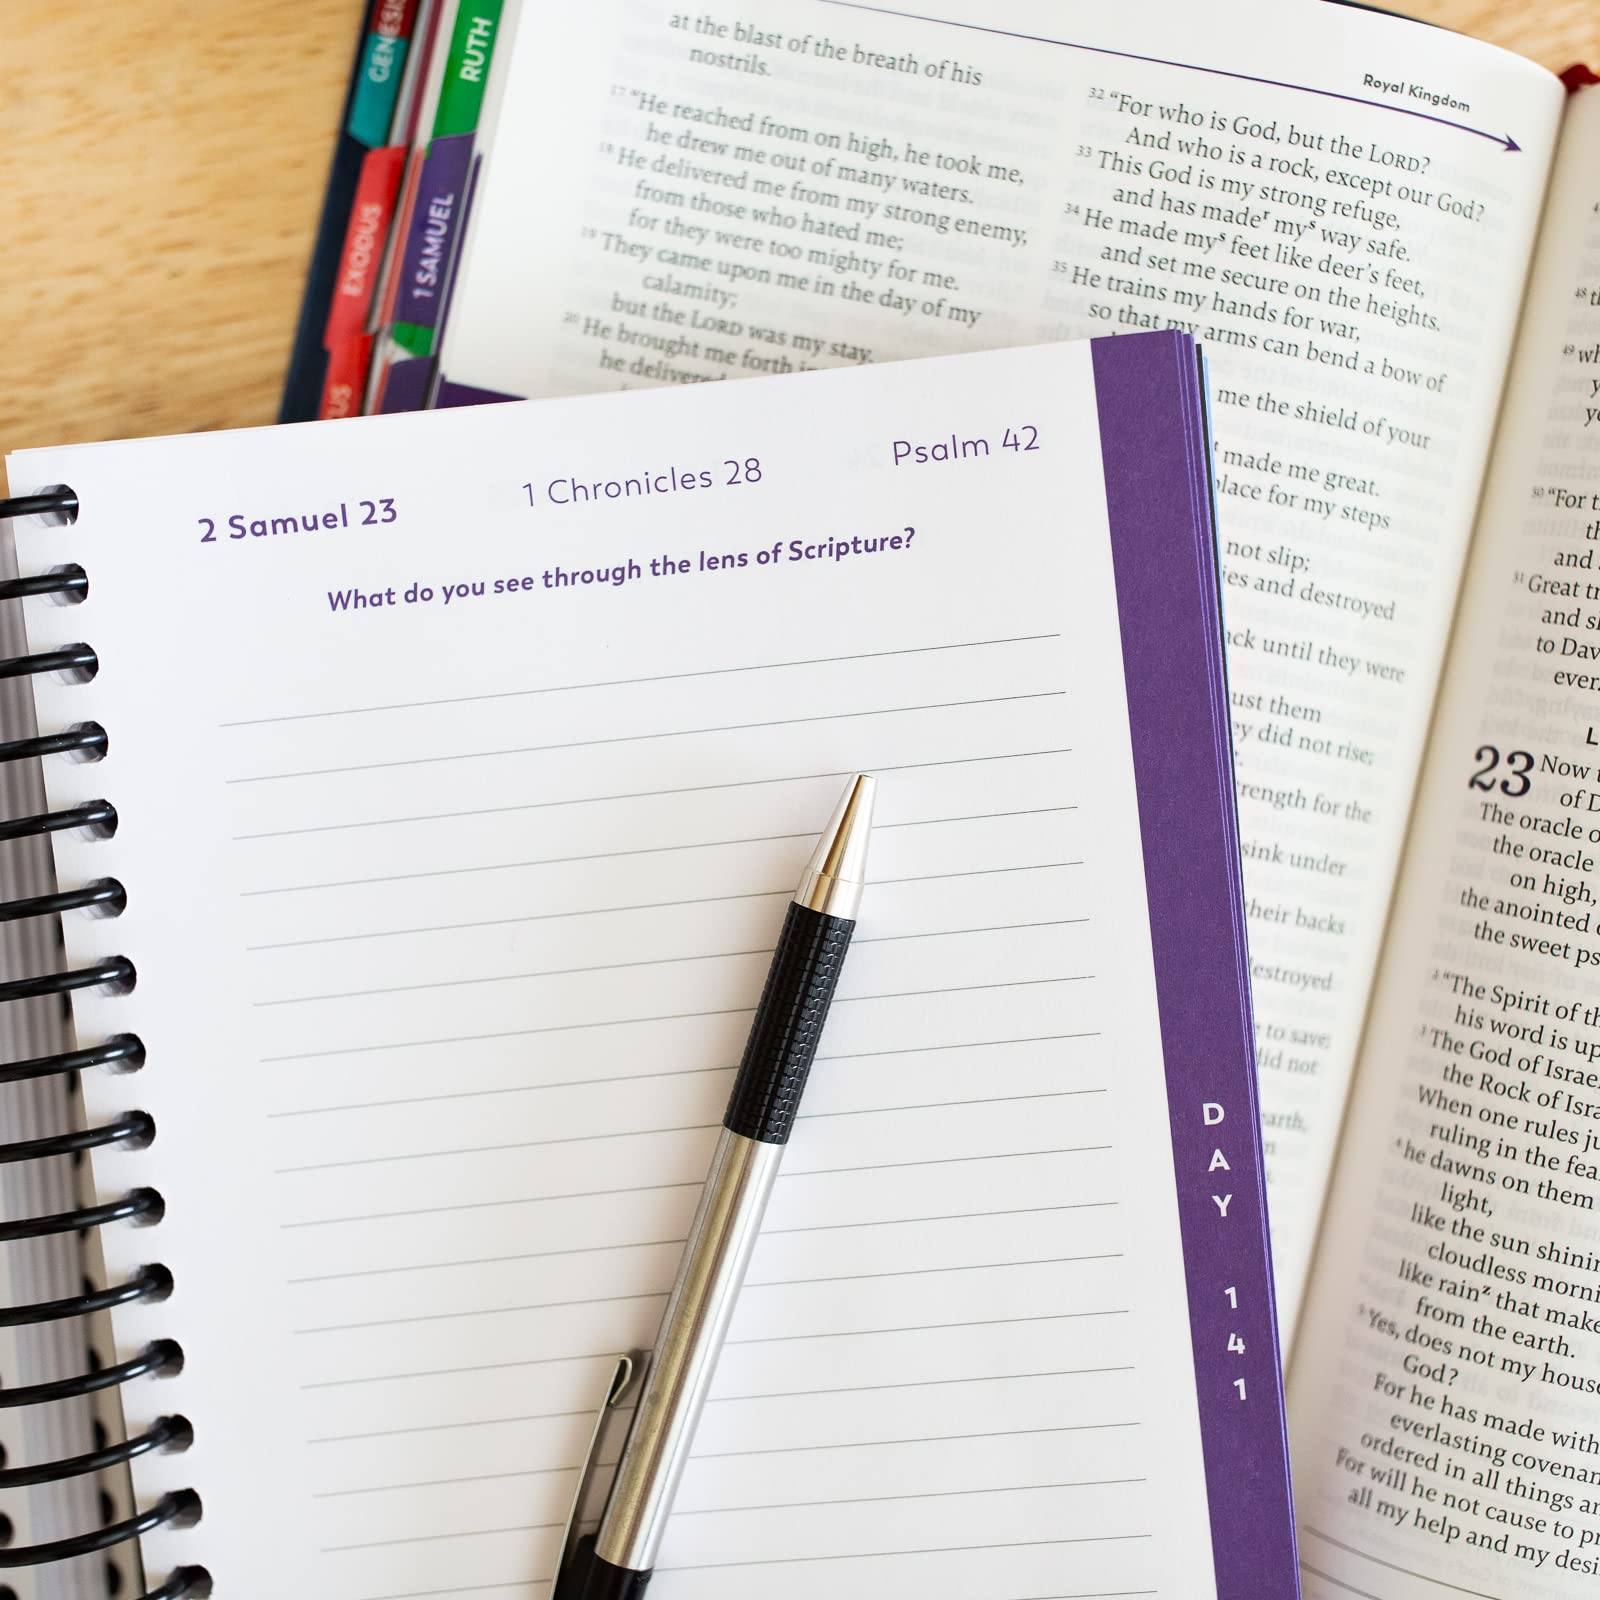 GENESIS
EXODUS
US
RUTH
1 SAMUEL
at the blast of the breath of his
nostrils.
17 "He reached from on high, he took me,
he drew me out of many waters.
18 He delivered me from my strong enemy,
from those who hated me;
for they were too mighty for me.
19 They came upon me in the day of my
calamity;
but the LORD was my stay.
20 He brought me forth
he delivered
Royal Kingdom
32 "For who is God, but the LORD?
And who is a rock, except our God?
33 This God is my strong refuge,
and has made r my s way safe.
34 He made my s feet like deer's feet,
and set me secure on the heights.
35 He trains my hands for war,
so that my arms can bend a bow of
me the shield of your
made me great.
place for my steps
not slip;
ies and destroyed
ack until they were
ust them
ey did not rise;
trength for the
sink under
their backs
destroyed
to save;
did not
earth,
2 Samuel 23
1 Chronicles 28
Psalm 42
What do you see through the lens of Scripture?
DAY 141
49 wh
50 "For t
th
and
51 Great tr
and s
to Dav
ever.
L
23 Now t
of D
The oracle o
the oracle
on high,
the anointed o
the sweet ps
2 "The Spirit of th
his word is up
3 The God of Israe
the Rock of Isra
When one rules ju
ruling in the fea
4 he dawns on them
light,
like the sun shinin
cloudless morni
like rain z that make
from the earth.
5 Yes, does not my house
God?
For he has made with
everlasting covenan
ordered in all things an
For will he not cause to pr
all my help and my desi